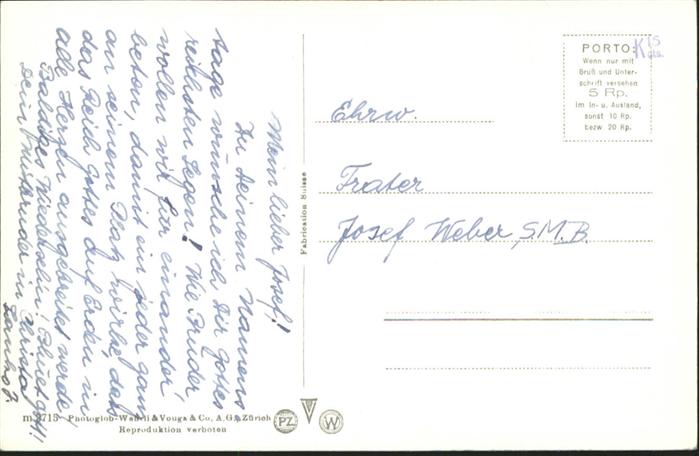 Mein lieber Josef!
Zu deinem Namens-
tage wünsche ich Dir Gottes
reichsten Segen! Wie Brüder
wollen wir für einander
beten, damit ein jeder ganz
an seinem Platz wirke, dass
das Reich Gottes auf Erden in
alle Herzen ausgebreitet werde!
Baldiges Wiedersehn! Bhüet Gott!
Dein Mitbruder in Christo
PORTO:
Wenn nur mit
Gruß und Unter-
schrift versehen
5 Rp.
im In- u. Ausland,
sonst 10 Rp.
bezw. 20 Rp.
K 15
cts.
Ehrw.
Frater
Josef Weber, S.M.B.
Fabrication Suisse
m.9715 Photoglob-Wehrli & Vouga & Co., A.G., Zürich
Reproduktion verboten
PZ
W